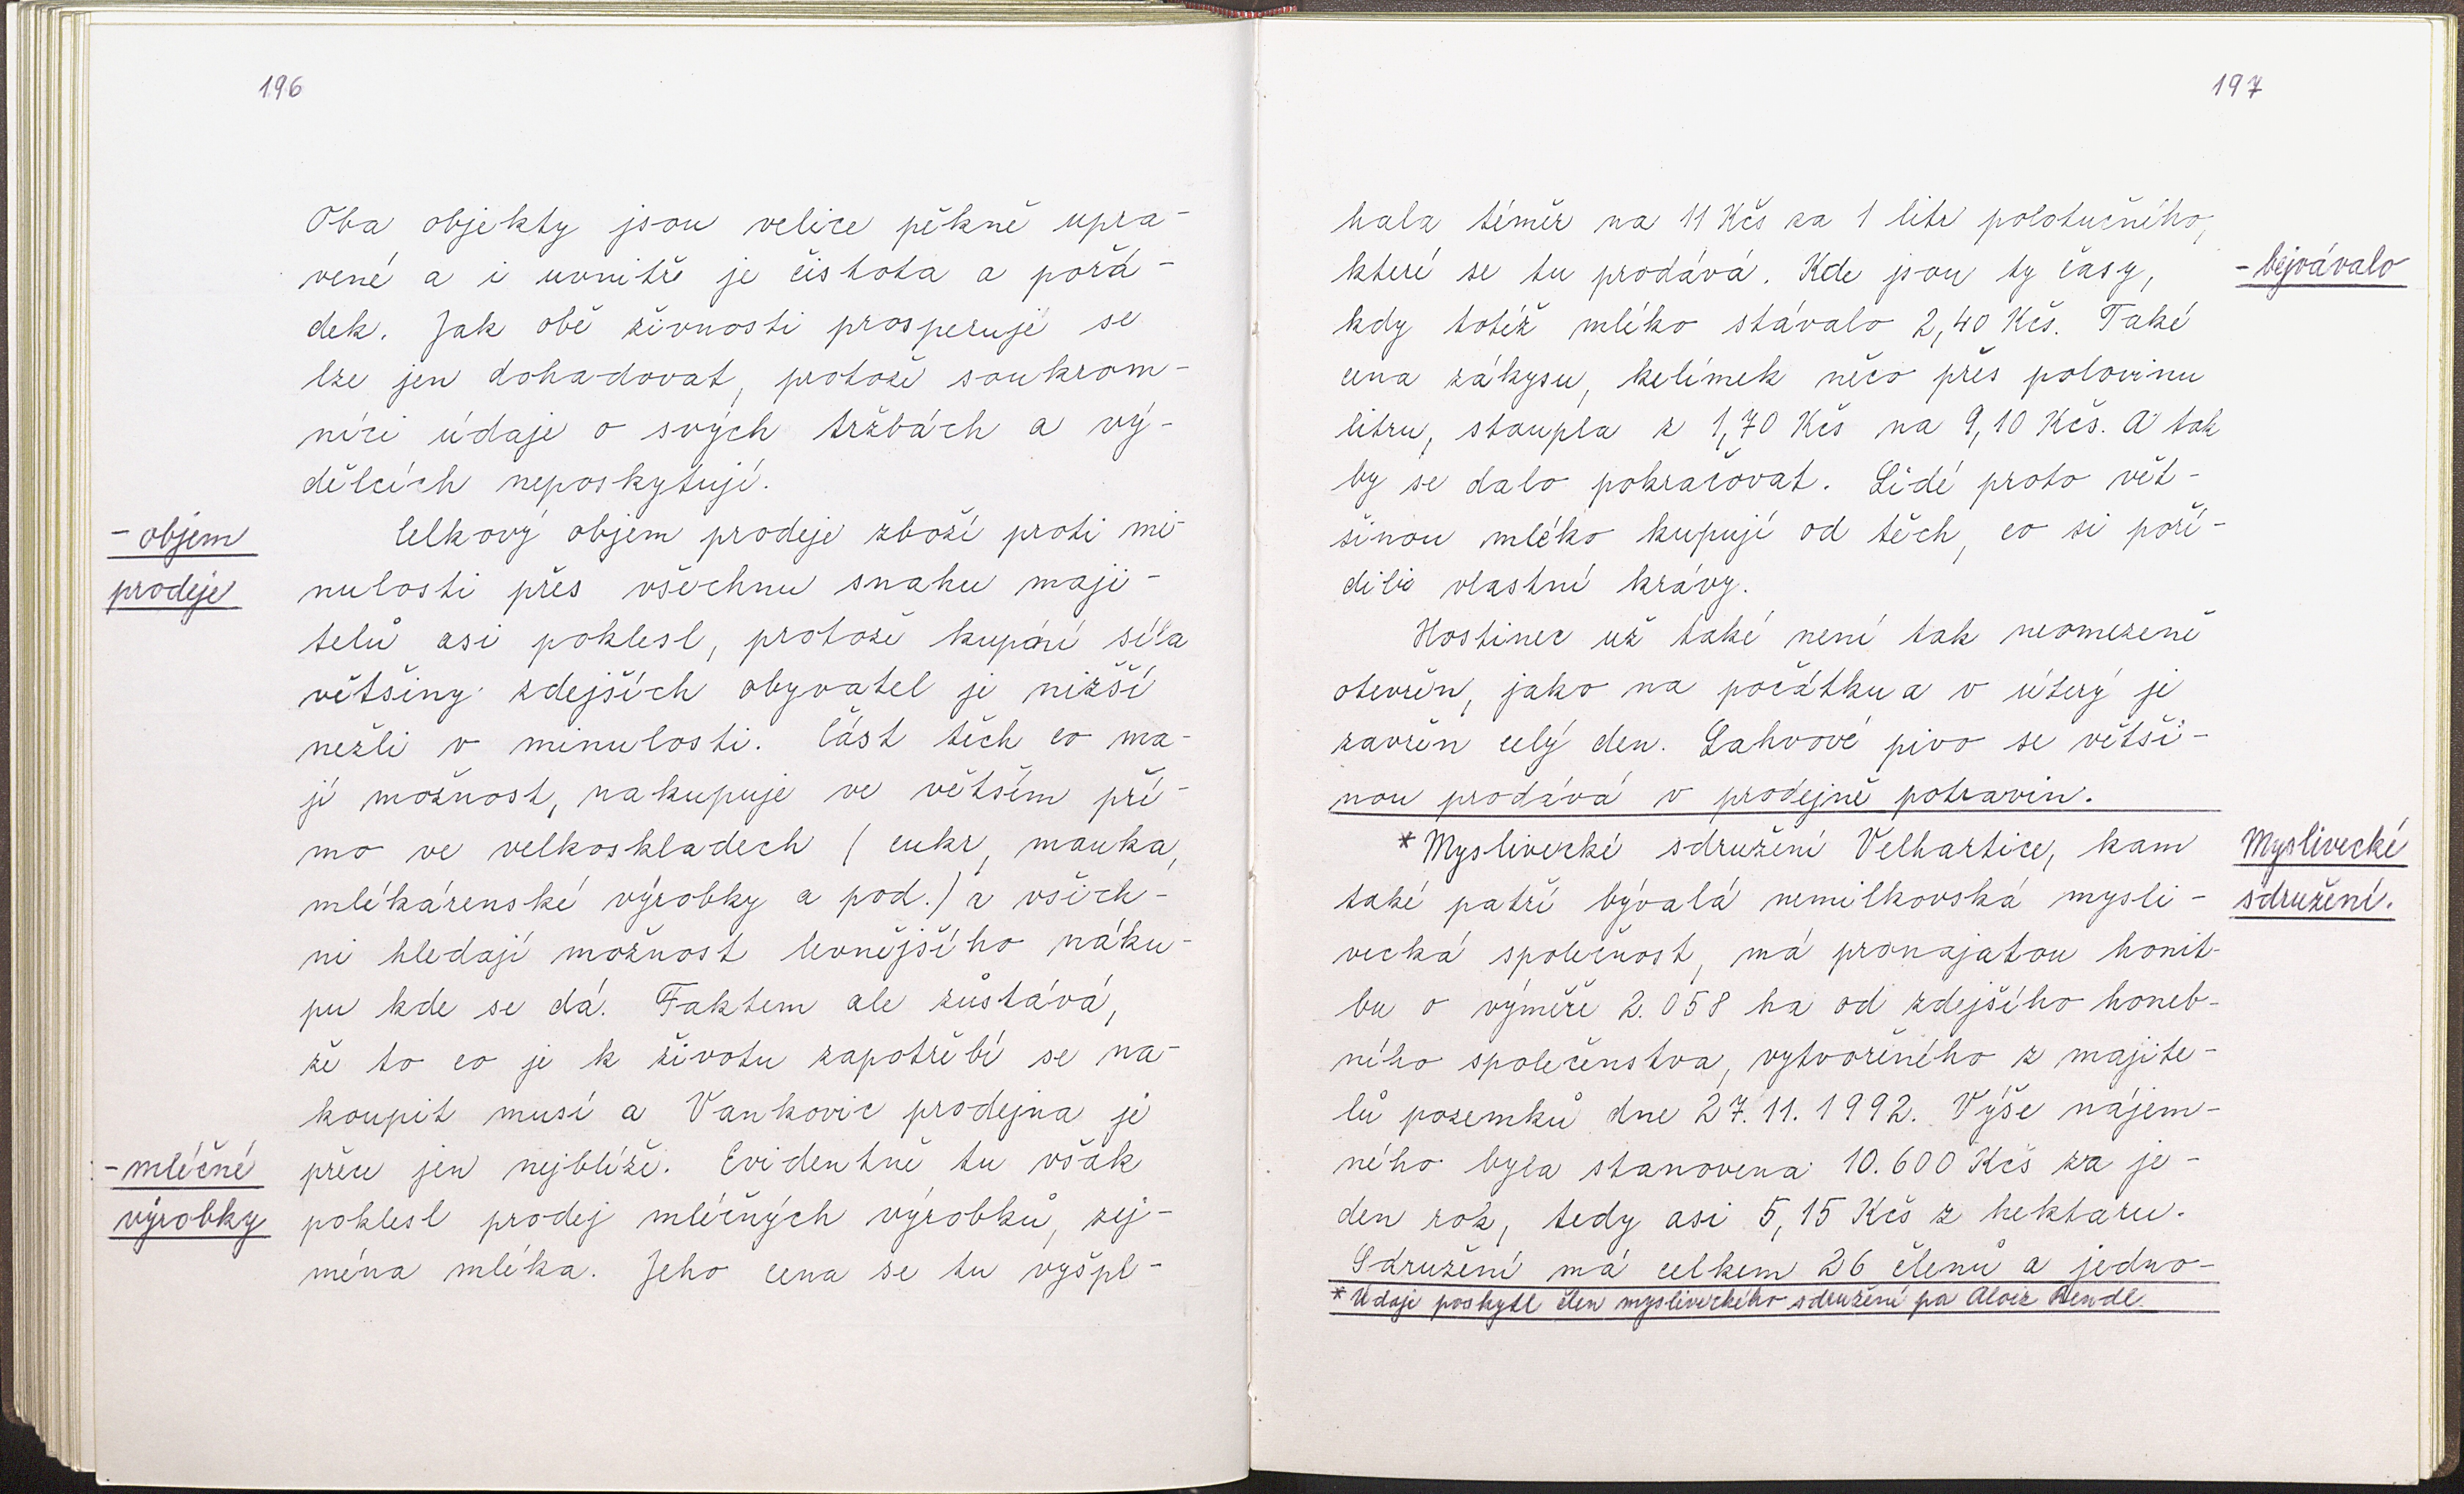 196
Oba objekty jsou velice pěkně upra-
vené a i uvnitř je čistota a pořá-
dek. Jak obě živnosti prosperují se
lze jen dohadovat, protože soukrom-
níci údaje o svých tržbách a vý-
dělcích neposkytují.
- objem
prodeje
Celkový objem prodeje zboží proti mi-
nulosti přes všechnu snahu maji-
telů asi poklesl, protože kupní síla
většiny zdejších obyvatel je nižší
nežli v minulosti. Část těch co ma-
jí možnost, nakupuje ve větším pří-
mo ve velkoskladech (cukr, mouka,
mlékárenské výrobky a pod.) a všich-
ni hledají možnost levnějšího náku-
pu kde se dá. Faktem ale zůstává,
že to co je k životu zapotřebí se na-
koupit musí a Vankovic prodejna je
- mléčné
výrobky
přece jen nejblíže. Evidentně tu však
poklesl prodej mléčných výrobků, zej-
ména mléka. Jeho cena se tu vyšpl-
197
hala téměř na 11 Kčs za 1 litr polotučného,
které se tu prodává. Kde jsou ty časy,
- bejvávalo
kdy totéž mléko stávalo 2,40 Kčs. Také
cena zákysu, kelímek něco přes polovinu
litru, stoupla z 1,70 Kčs na 9,10 Kčs. A tak
by se dalo pokračovat. Lidé proto vět-
šinou mléko kupují od těch, co si poří-
dili vlastní krávy.
Hostinec už také není tak neomezeně
otevřen, jako na počátku a v úterý je
zavřen celý den. Lahvové pivo se větši-
nou prodává v prodejně potravin.
* Myslivecké sdružení Velhartice, kam
Myslivecké
sdružení.
také patří bývalá nemilkovská mysli-
vecká společnost, má pronajatou honit-
bu o výměře 2.058 ha od zdejšího honeb-
ního společenstva, vytvořeného z majite-
lů pozemků dne 27.11.1992. Výše nájem-
ného byla stanovena 10.600 Kčs za je-
den rok, tedy asi 5,15 Kčs z hektaru.
Sdružení má celkem 26 členů a jedno-
* Údaje poskytl člen mysliveckého sdružení pa Alois